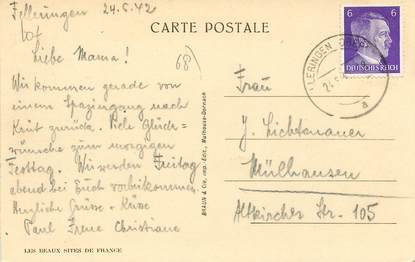 Felleringen 24.5.42
CARTE POSTALE
Liebe Mama!
68)
Wir kommen gerade von
einem Spaziergang nach
Krüt zurück. Viele Glück-
wünsche zum morgigen
Festtag. Wir werden Freitag
abend bei Euch vorbeikommen
Herzliche Grüsse + Küsse
Paul Irene Christiane
LES BEAUX SITES DE FRANCE
BRAUN & Cie, imp.-Édit., Mulhouse-Dornach
6 6
DEUTSCHES REICH
a
Frau
J. Lichtenauer
Mülhausen
Altkircher Str. 105